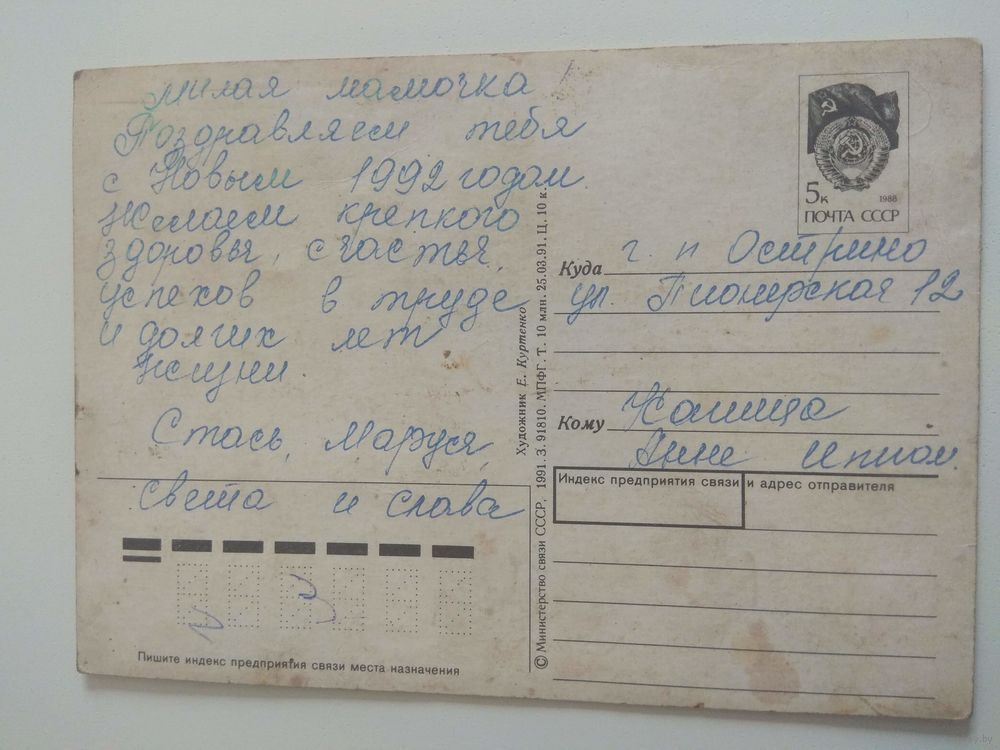 Милая мамочка
Поздравляем тебя
с Новым 1992 годом.
Желаем крепкого
здоровья, счастья,
успехов в труде
и долгих лет
жизни.
Стась, Маруся,
Света и Слава
Пишите индекс предприятия связи места назначения
© Министерство связи СССР, 1991. З. 91810. МПФГ. Т. 10 млн. 25.03.91. Ц. 10 к.
Художник Е. Куртенко
5к 1988
ПОЧТА СССР
Куда г. п Острино
ул. Пионерская 12
Кому
Анне
Индекс предприятия связи и адрес отправителя